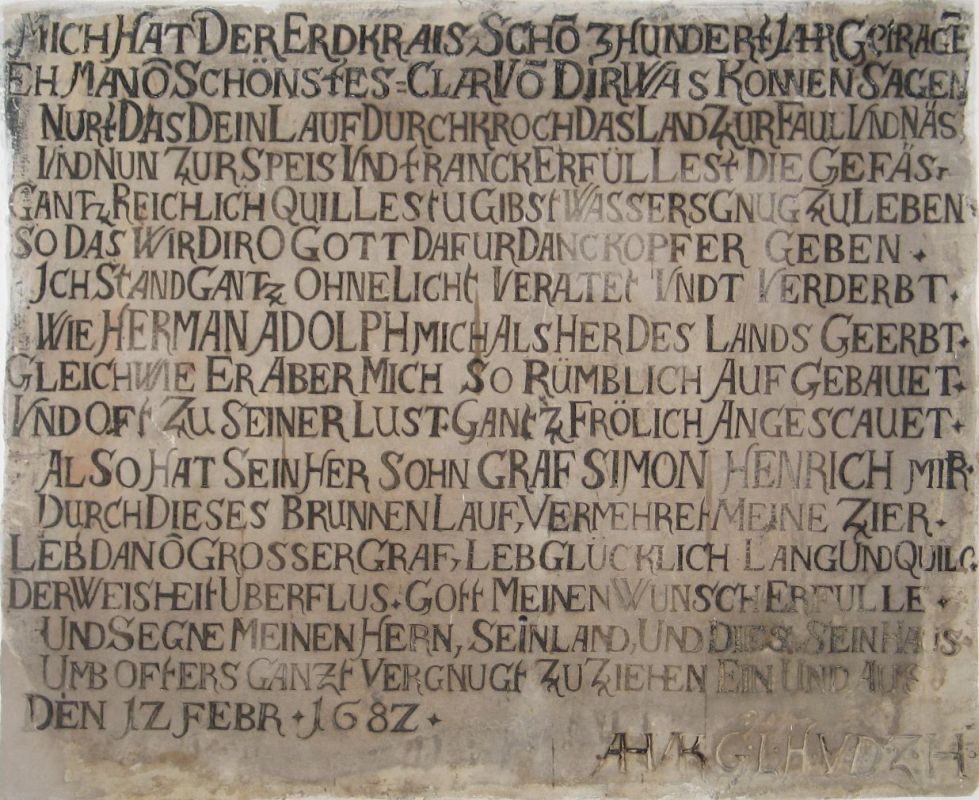 MICH HAT DER ERDKRAIS SCHŌ 3 HUNDERT IAHR GETRAGĒ
EH MAN Ô SCHÖNSTES = CLAR VŌ DIR WAS KONNEN SAGEN
NURT DAS DEIN LAUF DURCHKROCH DAS LAND ZUR FAUL VND NÄS
VND NUN ZUR SPEIS VND TRANCK ERFÜLLEST DIE GEFÄS
GANTZ REICHLICH QUILLESTU GIBST WASSERS GNUG ZU LEBEN
SO DAS WIR DIR O GOTT DAFUR DANCKOPFER GEBEN
ICH STAND GANTZ OHNE LICHT VERALTET VNDT VERDERBT
WIE HERMAN ADOLPH MICH ALS HER DES LANDS GEERBT
GLEICHWIE ER ABER MICH SO RÜMBLICH AUF GEBAUET
VND OFT ZU SEINER LUST GANTZ FRÖLICH ANGESCAUET
ALSO HAT SEIN HER SOHN GRAF SIMON HENRICH MIR
DURCH DIESES BRUNNEN LAUF, VERMEHRET MEINE ZIER
LEB DAN Ô GROSSER GRAF, LEB GLÜCKLICH LANG UND QUILL
DER WEISHEIT UBERFLUS GOTT MEINEN WUNSCH ERFULLE
UND SEGNE MEINEN HERN, SEIN LAND, UND DIES SEIN HAUS
UMB OFTERS GANZT VERGNUGT ZU ZIEHEN EIN UND AUS
DEN 12 FEBR 1682
AHVK G.L.H.V.D.Z.H.